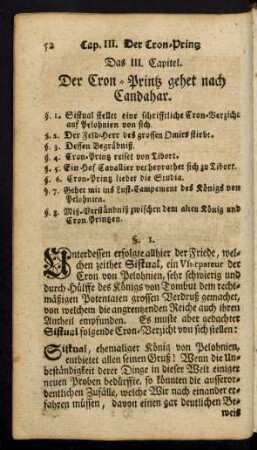 52 Cap. III. Der Cron-Printz
Das III. Capitel.
Der Cron-Printz gehet nach
Candahar.
§. 1. Sistual stellet eine schrifftliche Cron-Verzicht
auf Pelohnien von sich.
§. 2. Der Feld-Herr des grossen Dnirs stirbt.
§. 3. Dessen Begräbniß.
§. 4. Cron-Printz reiset von Tibort.
§. 5. Ein Hof Cavallier verheyrathet sich zu Tibort.
§. 6. Cron-Printz liebet die Studia.
§. 7. Gehet mit ins Lust-Campement des Königs von
Pelohnien.
§. 8. Miß-Verständniß zwischen dem alten König und
Cron Printzen.
§. 1.
Unterdessen erfolgte allhier der Friede, wel-
chen zeither Sistual, ein Usurpateur der
Cron von Pelohnien, sehr schwierig und
durch Hülffe des Königs von Tombut dem recht-
mäßigen Potentaten grossen Verdruß gemachet,
von welchem die angrentzenden Reiche auch ihren
Antheil empfunden. Es muste aber gedachter
Sistual folgende Cron-Verzicht von sich stellen:
Sistual, ehemaliger König von Pelohnien,
entbietet allen seinen Gruß! Wenn die Un-
beständigkeit derer Dinge in dieser Welt einiger
neuen Proben bedürffte, so könnten die ausseror-
dentlichen Zufälle, welche Wir nach einander er-
fahren müssen, davon einen gar deutlichen Be-
weis